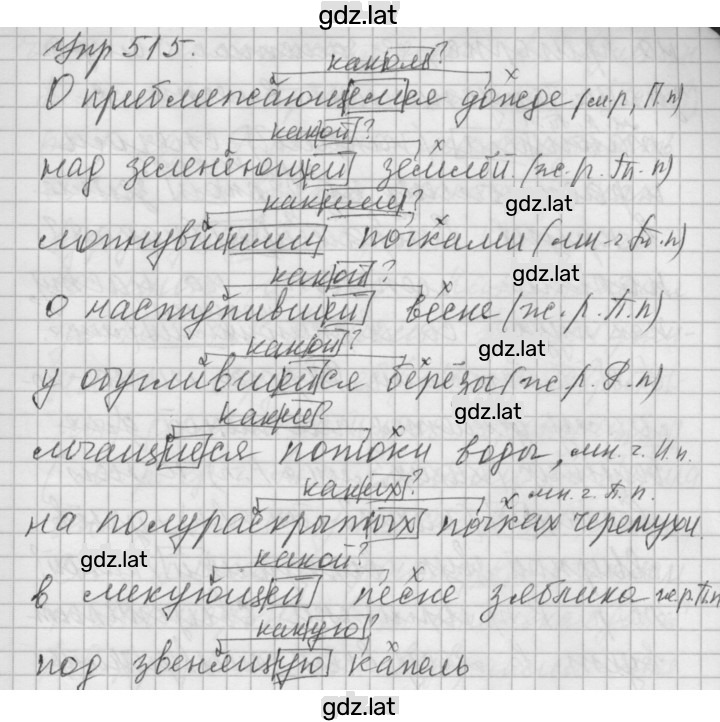 gdz.lat
Упр 515.
каком?
О приближающемся дожде (м.р., П.п)
какой?
над зеленеющей землёй. (ж.р. Тв.п)
gdz.lat
какими?
лопнувшими почками (мн.ч Тв.п)
gdz.lat
какой?
о наступившей весне (ж.р. П.п)
gdz.lat
какой?
у обуглившейся берёзы (ж.р. Р.п)
gdz.lat
какие?
мчащиеся потоки воды, мн.ч. И.п.
каких? мн.ч. П.п.
на полураскрытых почках черёмухи.
gdz.lat
какой?
в ликующей песне зяблика ж.р. П.п
какую?
под звенящую капель
gdz.lat